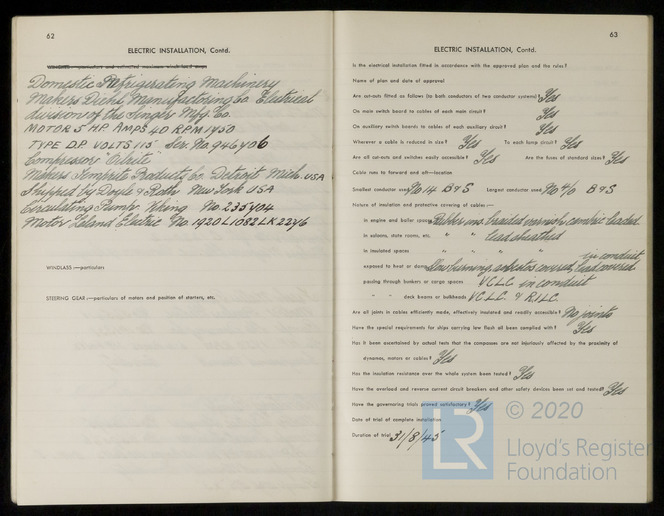 62
ELECTRIC INSTALLATION, Contd.
Domestic Refrigerating Machinery
Makers Diehl Manufacturing Co. Electrical
division of the Singer Mfg Co.
MOTOR 5 HP AMPS 40 RPM 1450
TYPE D.P. VOLTS 115 Ser. No. 946406
Compressors
Makers Temprite Products Co. Detroit Mich. USA
Shipped by Doyle & Roth New York USA
Circulating Pump Viking No. 235404
Motor Leland Electric No. 1920L1082LK2246
WINDLASS:—particulars
STEERING GEAR:—particulars of motors and position of starters, etc.
63
ELECTRIC INSTALLATION, Contd.
Is the electrical installation fitted in accordance with the approved plan and the rules?
Name of plan and date of approval
Are cut-outs fitted as follows (to both conductors of two conductor systems)? Yes
On main switch board to cables of each main circuit? Yes
On auxiliary switch boards to cables of each auxiliary circuit? Yes
Wherever a cable is reduced in size? Yes To each lamp circuit? Yes
Are all cut-outs and switches easily accessible? Yes Are the fuses of standard sizes? Yes
Cable runs to forward and aft—location
Smallest conductor used No 14 B & S Largest conductor used No 4/0 B & S
Nature of insulation and protective covering of cables:—
in engine and boiler spaces Rubber ins. braided varnish cambric leaded
in saloons, state rooms, etc. " " lead sheathed
in insulated spaces " " " "
in conduit
exposed to heat or damp Slow burning, asbestos covered, lead covered
passing through bunkers or cargo spaces V C L C in conduit
" " deck beams or bulkheads V C L C. & R.I.L.C.
Are all joints in cables efficiently made, effectively insulated and readily accessible? No joints
Have the special requirements for ships carrying low flash oil been complied with? Yes
Has it been ascertained by actual tests that the compasses are not injuriously affected by the proximity of
dynamos, motors or cables? Yes
Has the insulation resistance over the whole system been tested? Yes
Have the overload and reverse current circuit breakers and other safety devices been set and tested? Yes
Have the governoring trials proved satisfactory? Yes
Date of trial of complete installation
Duration of trial 31/8/45
LR © 2020
Lloyd's Register
Foundation